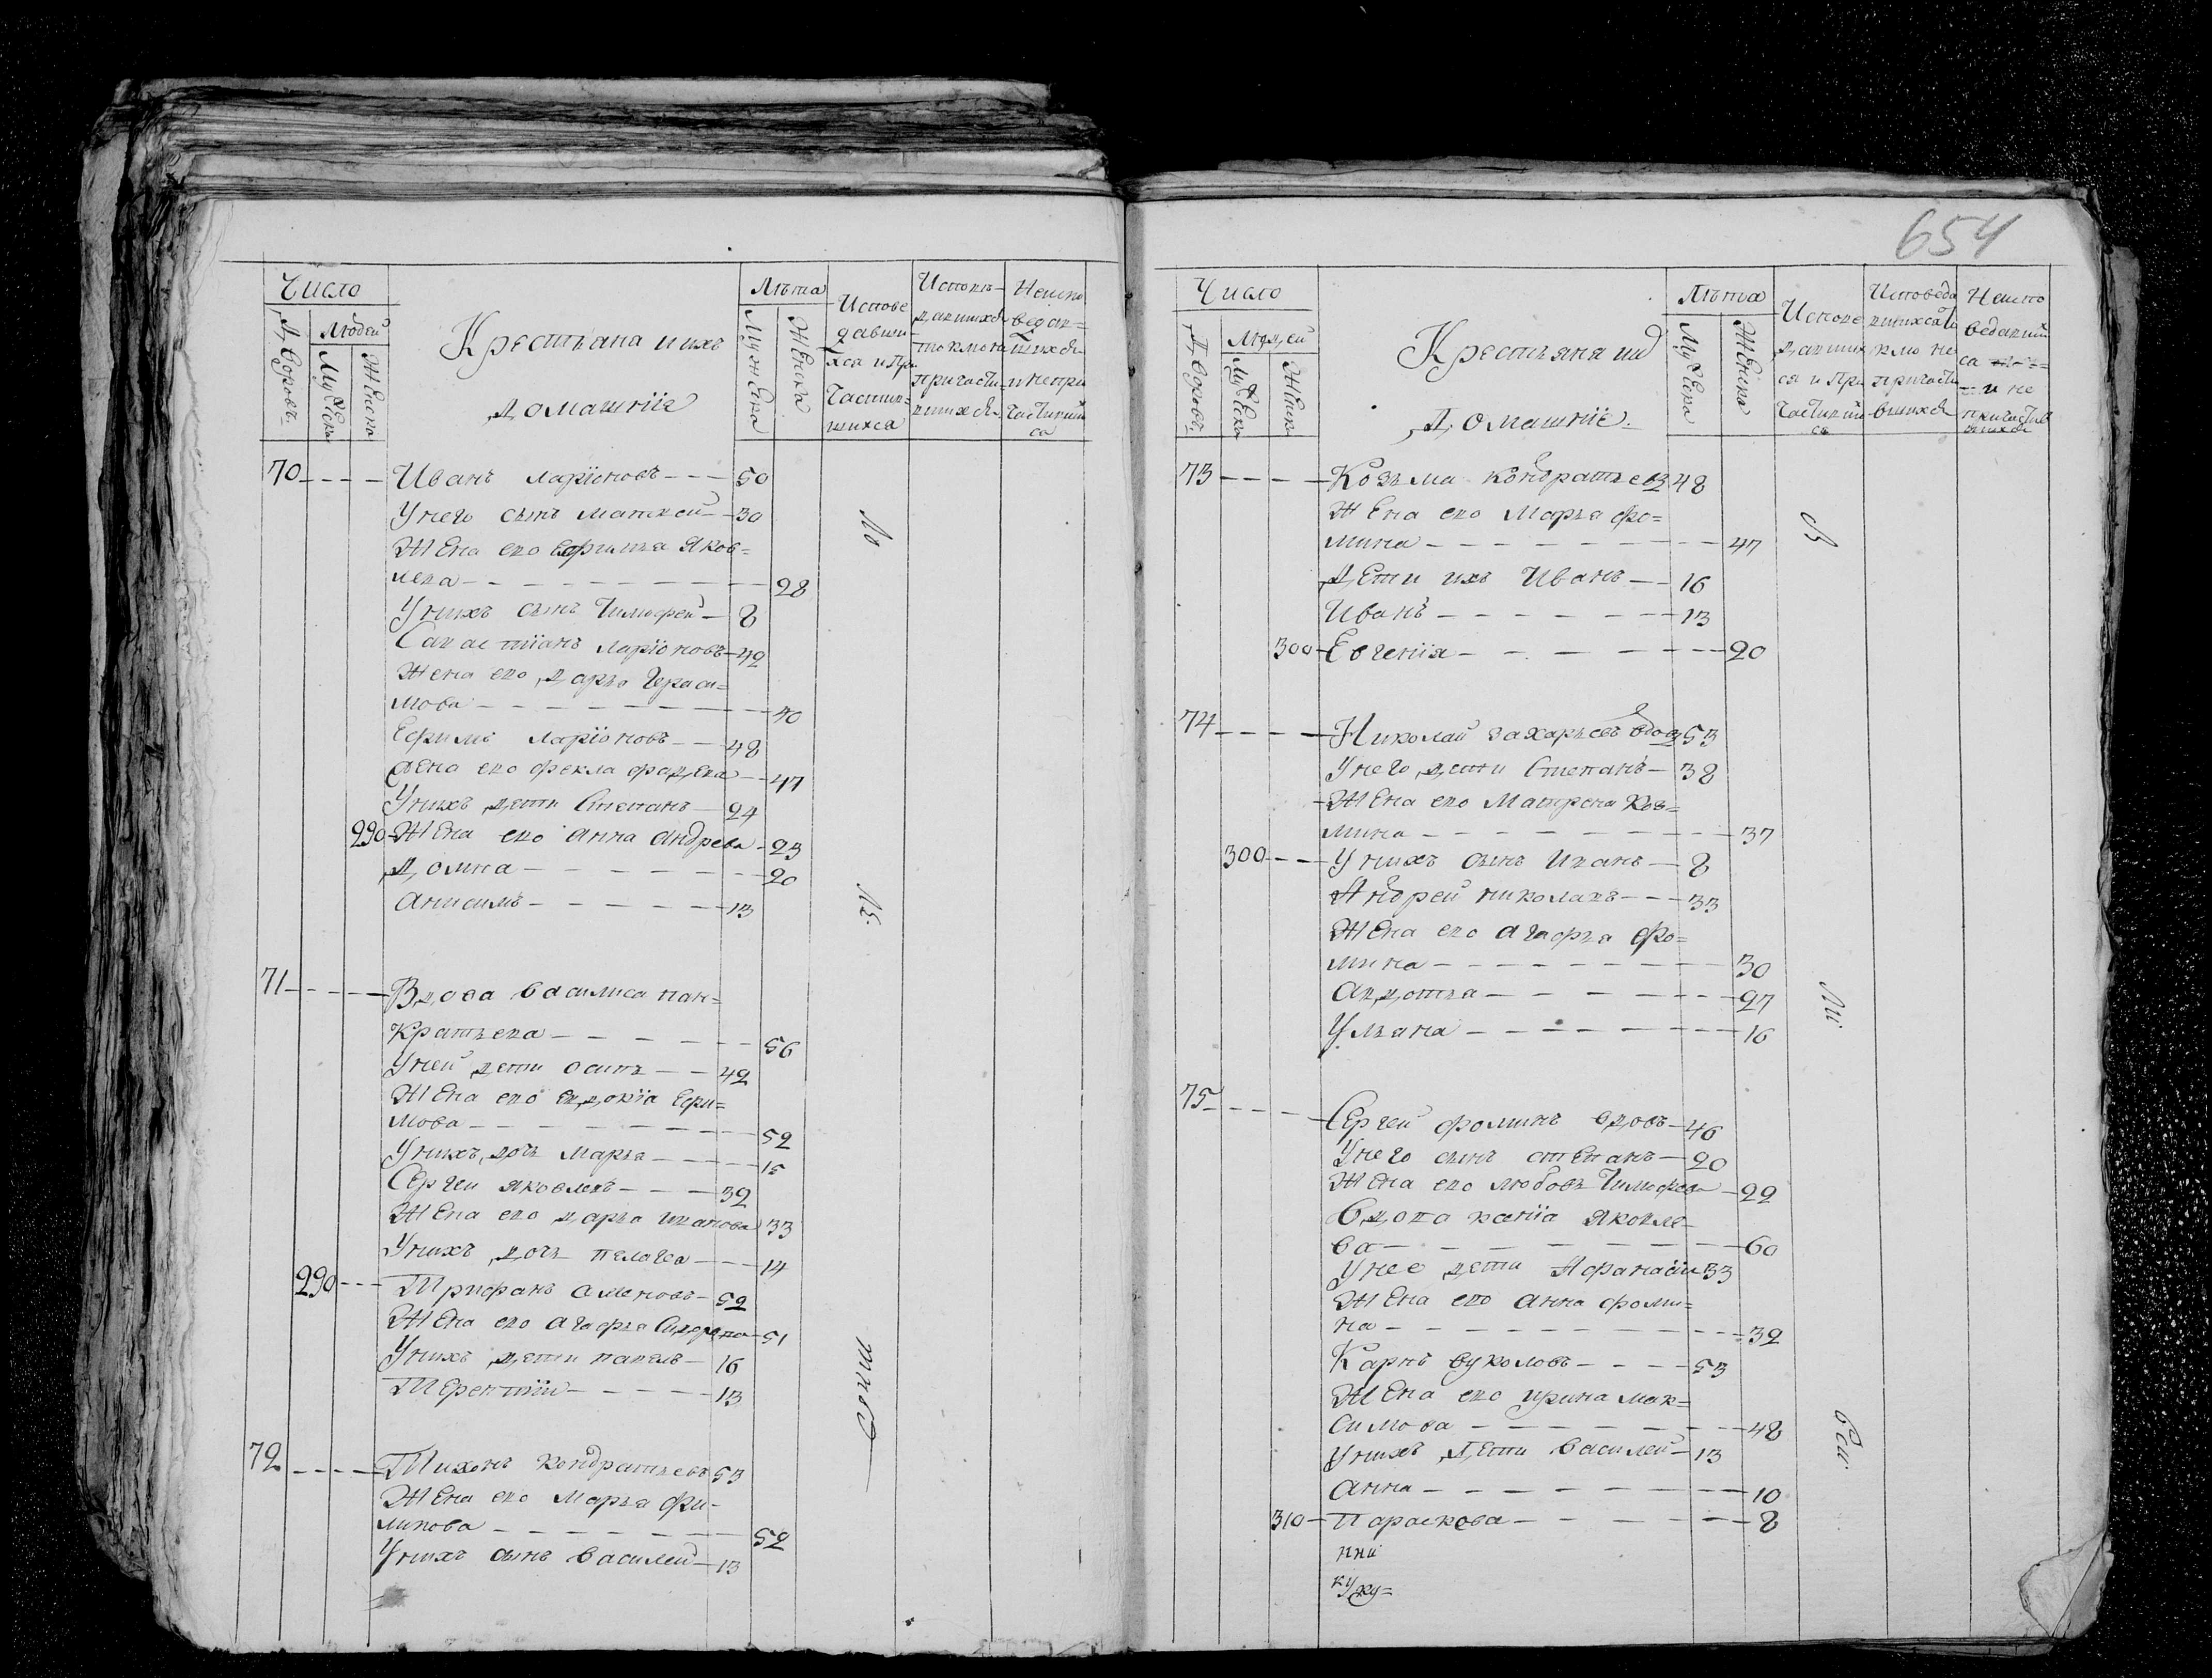 Число
Людей
Дворовъ
Муж Ска
Женска
Крестьяна и ихъ
домашнiе
Лѣта
Мужеска
Женска
Испове
давши
хся и При
частив=
шихся
Исповѣ-
давшихся
токмо не
причасти-
вшихся
Неиспо
ведав=
шихся
и непри
частивши
ся
70 Иванъ Ларiоновъ 50
У него сынъ Матвей 30
Жена ево Ефимья Яков=
лева 28
У нихъ сынъ Тимофей 8
Савастiянъ Ларiоновъ 42
Жена ево дарья Гераси=
мова 40
Ефимъ Ларiоновъ 48
Жена ево фекла фадева 47
У нихъ дети Степанъ 24
290 Жена ево Анна Андрева 23
Домна 20
Анисимъ 13
71 Вдова василиса пан=
кратьева 56
У ней дети осипъ 42
Жена ево Евдокiа Ефи=
мова 52
У нихъ дочь Марья 15
Сергеи яковлевъ 32
Жена ево дарья иванова 33
У нихъ дочь пелагеа 14
290 Трифанъ аменовъ 52
Жена ево Агафья Сидорова 51
У нихъ дети павелъ 16
Терентiи 13
72 Тихонъ кондратьевъ 53
Жена ево Марья фи-
липова 52
У нихъ сынъ василей 13
654
Число
Людей
Дворовъ
Муж Ска
Женска
Крестьяна ихъ
Домашнiе
Лѣта
Муж Ска
Женска
Испове
давших
ся и При
частивши
ся
Исповеда
вшихся то
кмо не
причасти
вшихся
Неиспо
ведавши
ся
и не
причастив
шихся
73 Козьма кондратьевъ 48
Жена ево Марья фо=
мина 47
Дети ихъ Иванъ 16
Иванъ 13
300 Евгенiя 20
74 Николай захарьевъ вдовъ 53
У него дети Степанъ 38
Жена ево Матрена Коз=
мина 37
300 У нихъ сынъ Иванъ 8
Андрей николавъ 33
Жена ево агафья фо=
мина 30
Авдотья 27
Ульяна 16
75 Сергей фоминъ вдовъ 46
У него сынъ степанъ 20
Жена ево любовь Тимофева 22
Вдова ксенiа яковле-
ва 60
У нее дети Афанасiи 33
Жена ево анна фоми=
на 32
Карпъ вуколовъ 53
Жена ево ирина мак=
симова 48
У нихъ дети василей 13
анна 10
310 Параскова 8